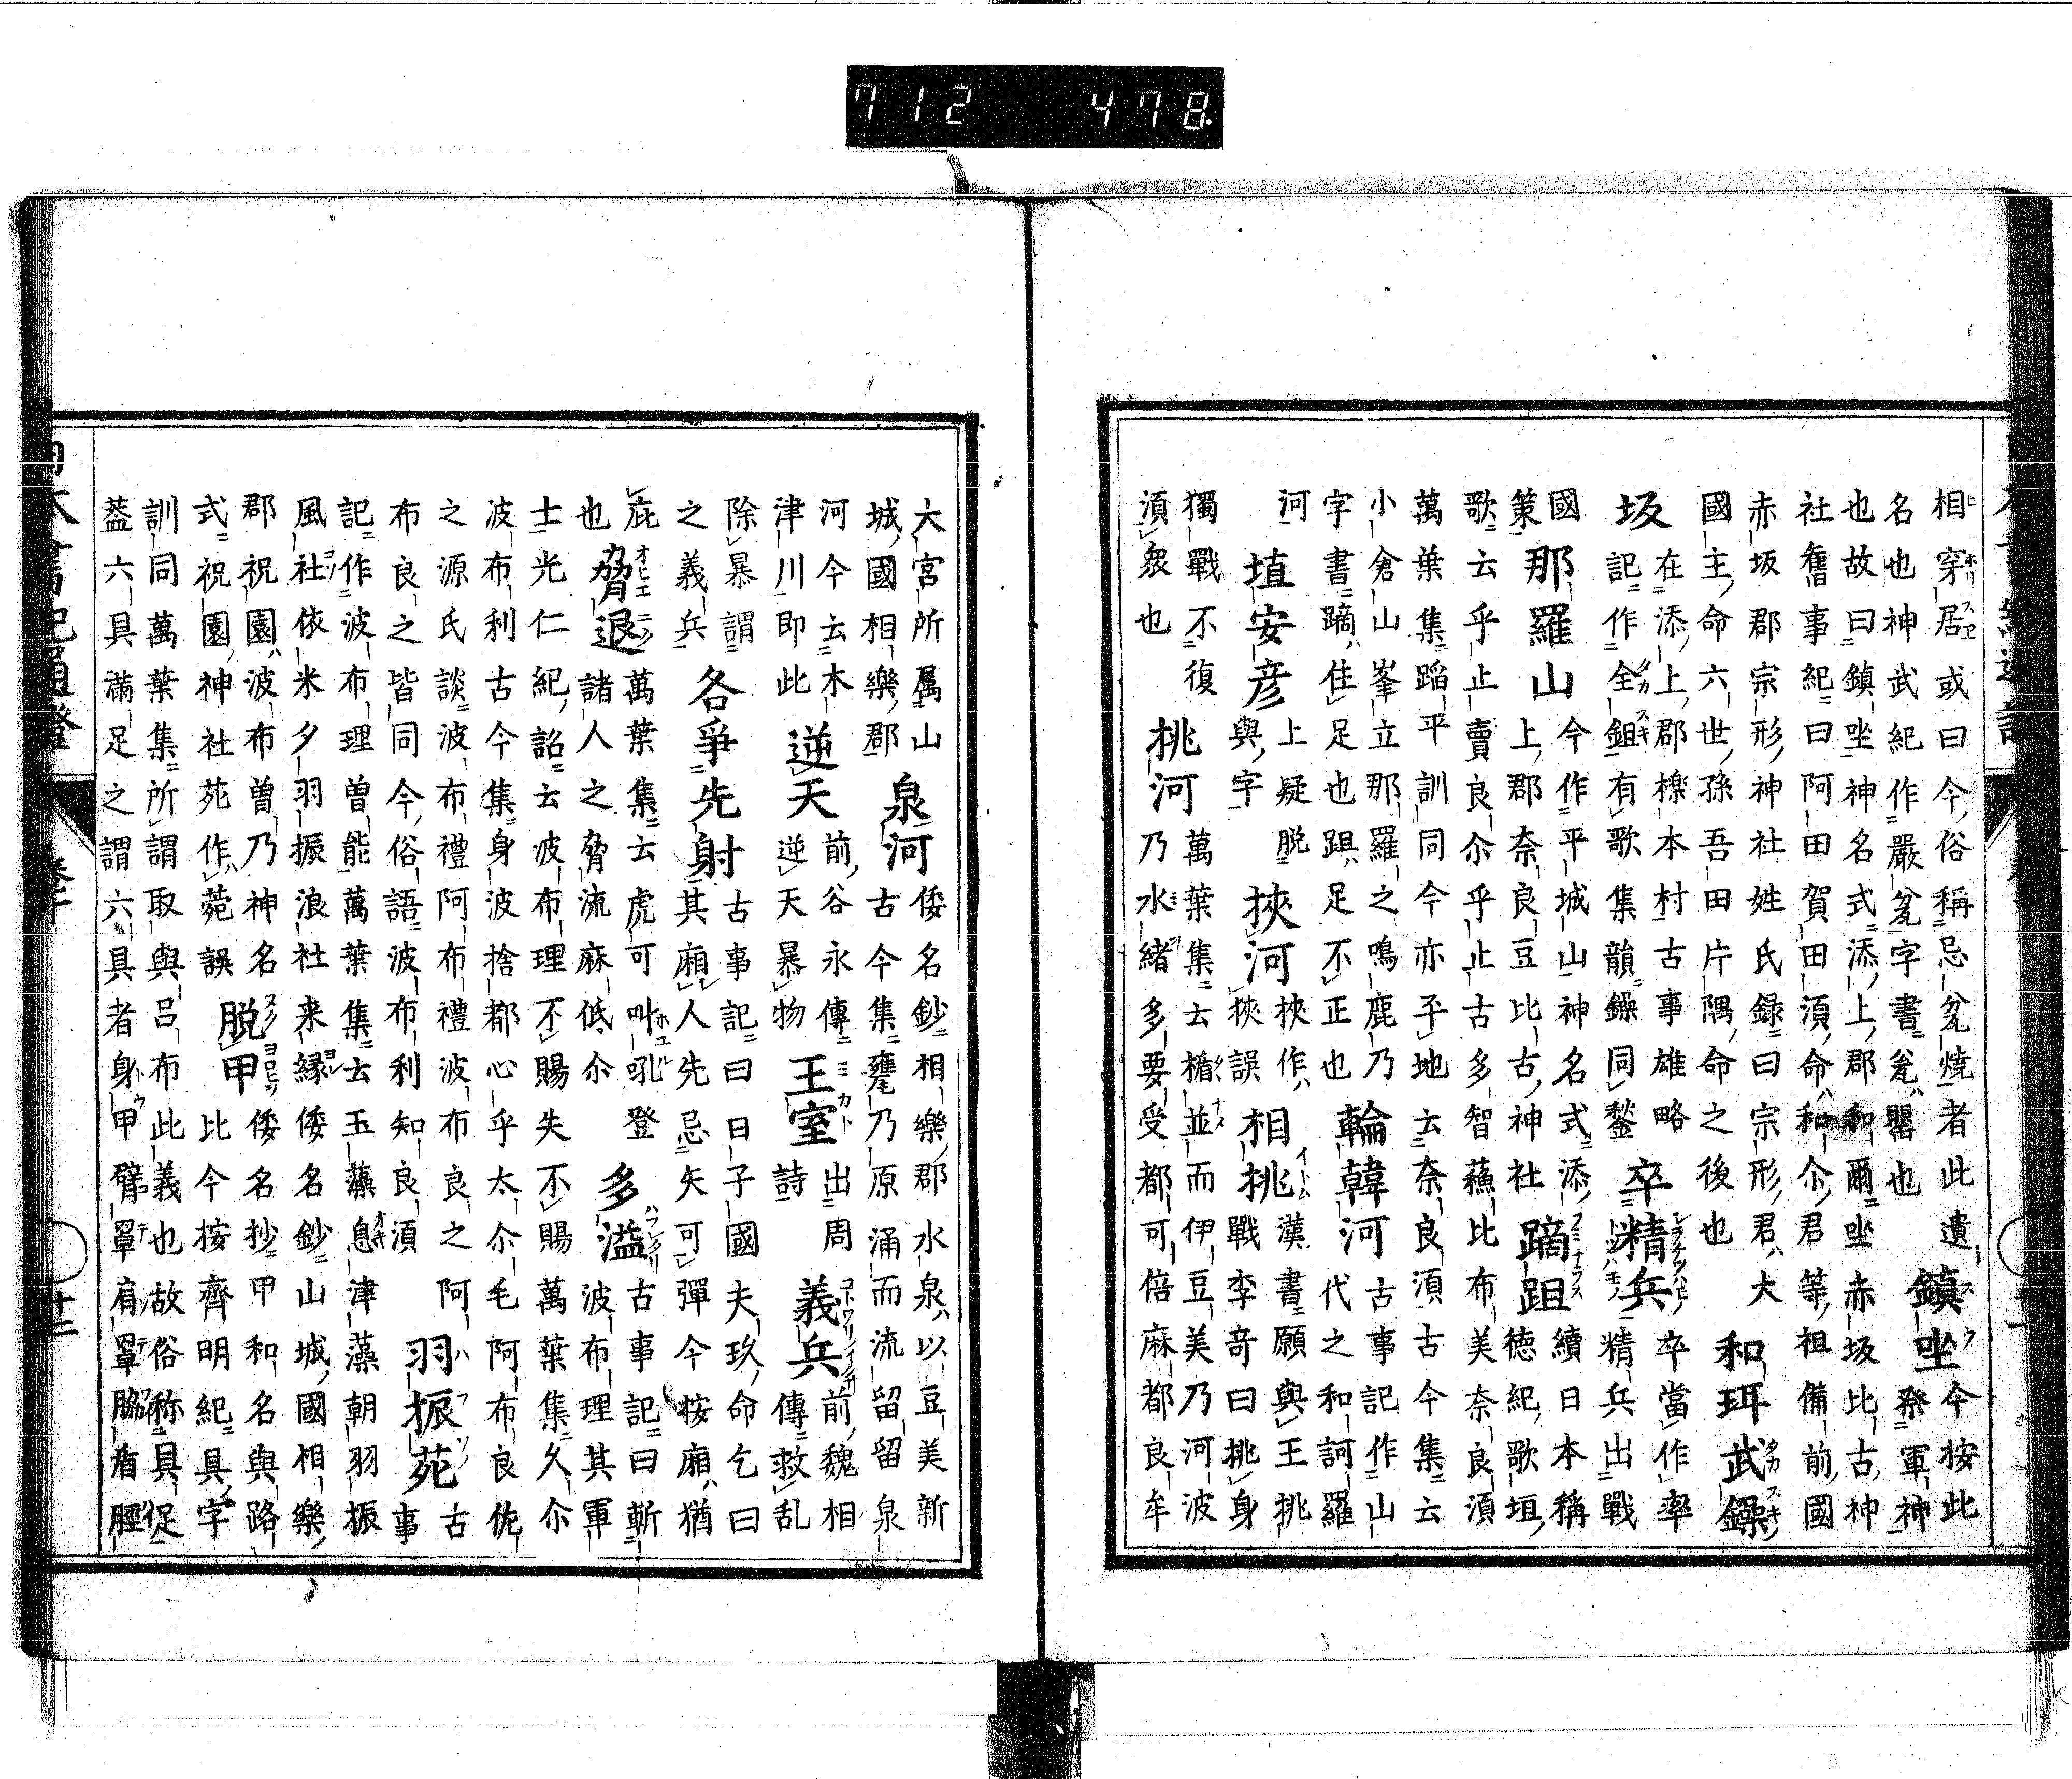 712 478
相穿居或曰今俗稱忌瓮燒者此遺 鎮坐今按此
名也神武紀作嚴瓮字書瓮罌也 祭軍神
也故曰鎮坐神名式添上郡和爾坐赤坂比古神
社舊事紀曰阿田賀田須命和尒君等祖備前國
赤坂郡宗形神社姓氏録曰宗形君大
國主命六世孫吾田片隅命之後也 和珥武鐰
坂 在添上郡櫟本村古事雄略
記作全鉏有歌集韻鐰同鍫 卒精兵 卒當作率
精兵出戰
國策 那羅山 今作平城山神名式添
上郡奈良豆比古神社 蹢跙 續日本稱
德紀歌垣
歌云乎止賣良尒乎止古多智蘓比布美奈良須
萬葉集蹈平訓同今亦予地云奈良須古今集云
小倉山峯立那羅之鳴鹿乃
字書蹢住足也跙足不正也 輪韓河 古事記作山
代之和訶羅
河 埴安彦 上疑脱
與字 挾河 挾作
狹誤 相挑 漢書願與王挑
戰李奇曰挑身
獨戰不復
須衆也 挑河 萬葉集云楯並而伊豆美乃河波
乃水緒多要受都可倍麻都良牟
大宮所属山
城國相樂郡 泉河 倭名鈔相樂郡水泉以豆美新
古今集甕乃原涌而流留留泉
河今云木
津川即此 逆天 前谷永傳
逆天暴物 王室 出周
詩 義兵 前魏相
傳救乱
除暴謂
之義兵 各爭先射 古事記曰日子國夫玖命乞曰
其廂人先忌矢可彈今按廂猶
庇
也 脅退 萬葉集云虎可叫吼登
諸人之脅流麻低尒 多溢 古事記曰斬
波布理其軍
士光仁紀詔云波布理不賜失不賜萬葉集久尒
波布利古今集身波捨都心乎太尒毛阿布良佐
之源氏談波布禮阿布禮波布良之阿
布良之皆同今俗語波布利知良須 羽振苑 古
事
記作波布理曽能萬葉集云玉藻息津藻朝羽振
風社依米夕羽振浪社来縁倭名鈔山城國相樂
郡祝園波布曽乃神名
式祝園神社苑作菀誤 脱甲 倭名抄甲和名與路
比今按齊明紀具字
訓同萬葉集所謂取與呂布此義也故俗称具足
葢六具滿足之謂六具者身甲臂罩肩罩脇盾脛